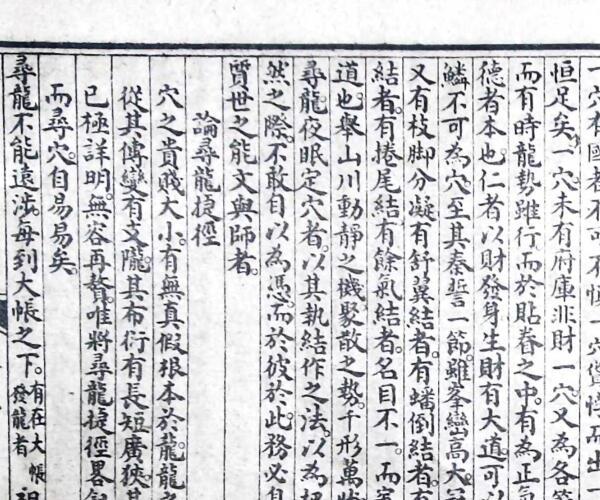 一穴有國者不可不慎一穴
恒足矣一穴未有府庫非財一穴又為各
而有時龍勢雖行而於貼脊之中有為正氣
德者本也仁者以財發身生財有大道可以
鱗不可為穴至其秦誓一節雖峯巒高大
又有枝脚分凝有舒翼結者有蟠倒結者有
結者有捲尾結有餘氣結者名目不一而
道也舉山川動靜之機聚散之勢千形萬狀
尋龍夜眠定穴者以其執結作之法以為
然之際不敢自以為憑而於彼於此務必
質世之能文與師者
論尋龍捷徑
穴之貴賤大小有無真假根本於龍龍之
從其傳變有支隴其布衍有長短廣狹其
已極詳明無容再贅唯將尋龍捷徑畧
而尋穴自易易矣
尋龍不能遠涉毎到大帳之下有在大帳發龍者